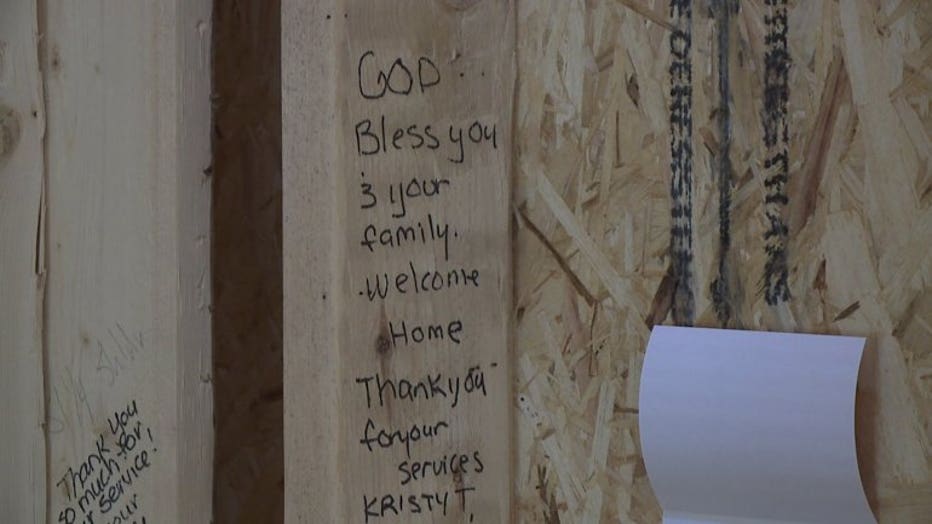 GOD
Bless you
& your
family.
Welcome
Home
Thank you
for your
services
KRISTY T.
Thank you
so much for
service!
your